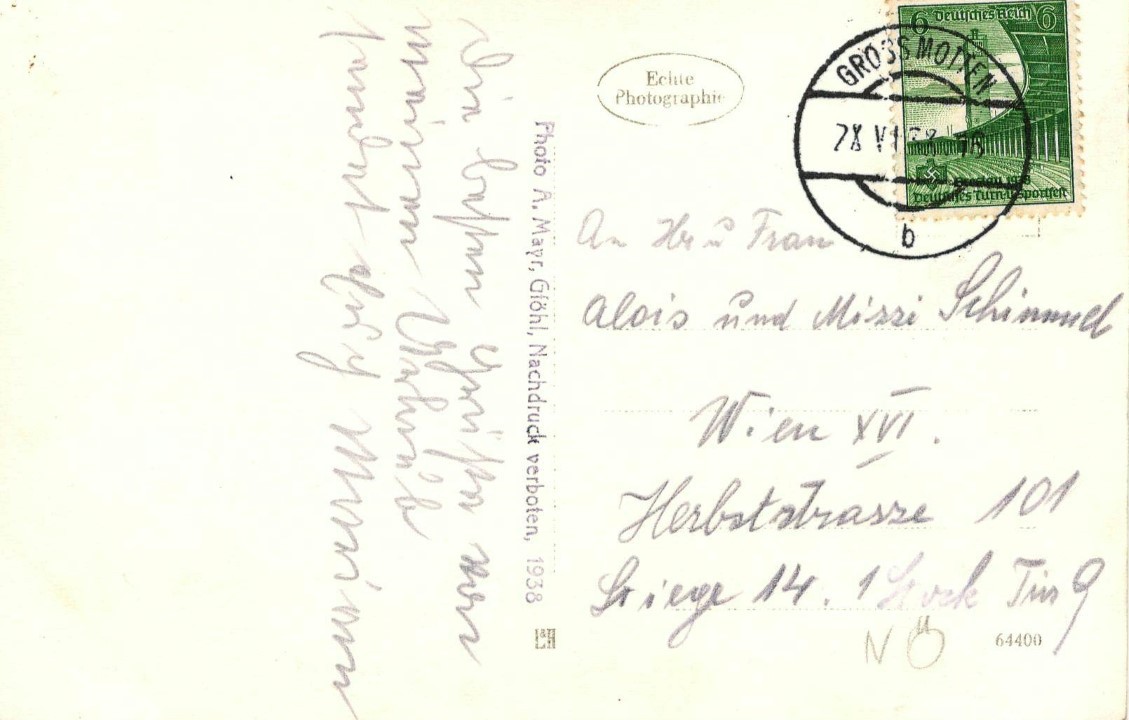 Die besten Grüße von
meinem Urlaub
sendet Euch Marianne
Photo A. Mayr, Gföhl, Nachdruck verboten, 1938
Echte
Photographie
6 Deutsches Reich 6
Breslau 1938
Deutsches Turn-u.Sportfest
GROSSMOTTEN
28 VI 38 18
b
An Hr u Frau
Alois und Mizzi Schimmel
Wien XVI.
Herbststrasse 101
Stiege 14. 1 Stock Tür 9
NÖ
64400